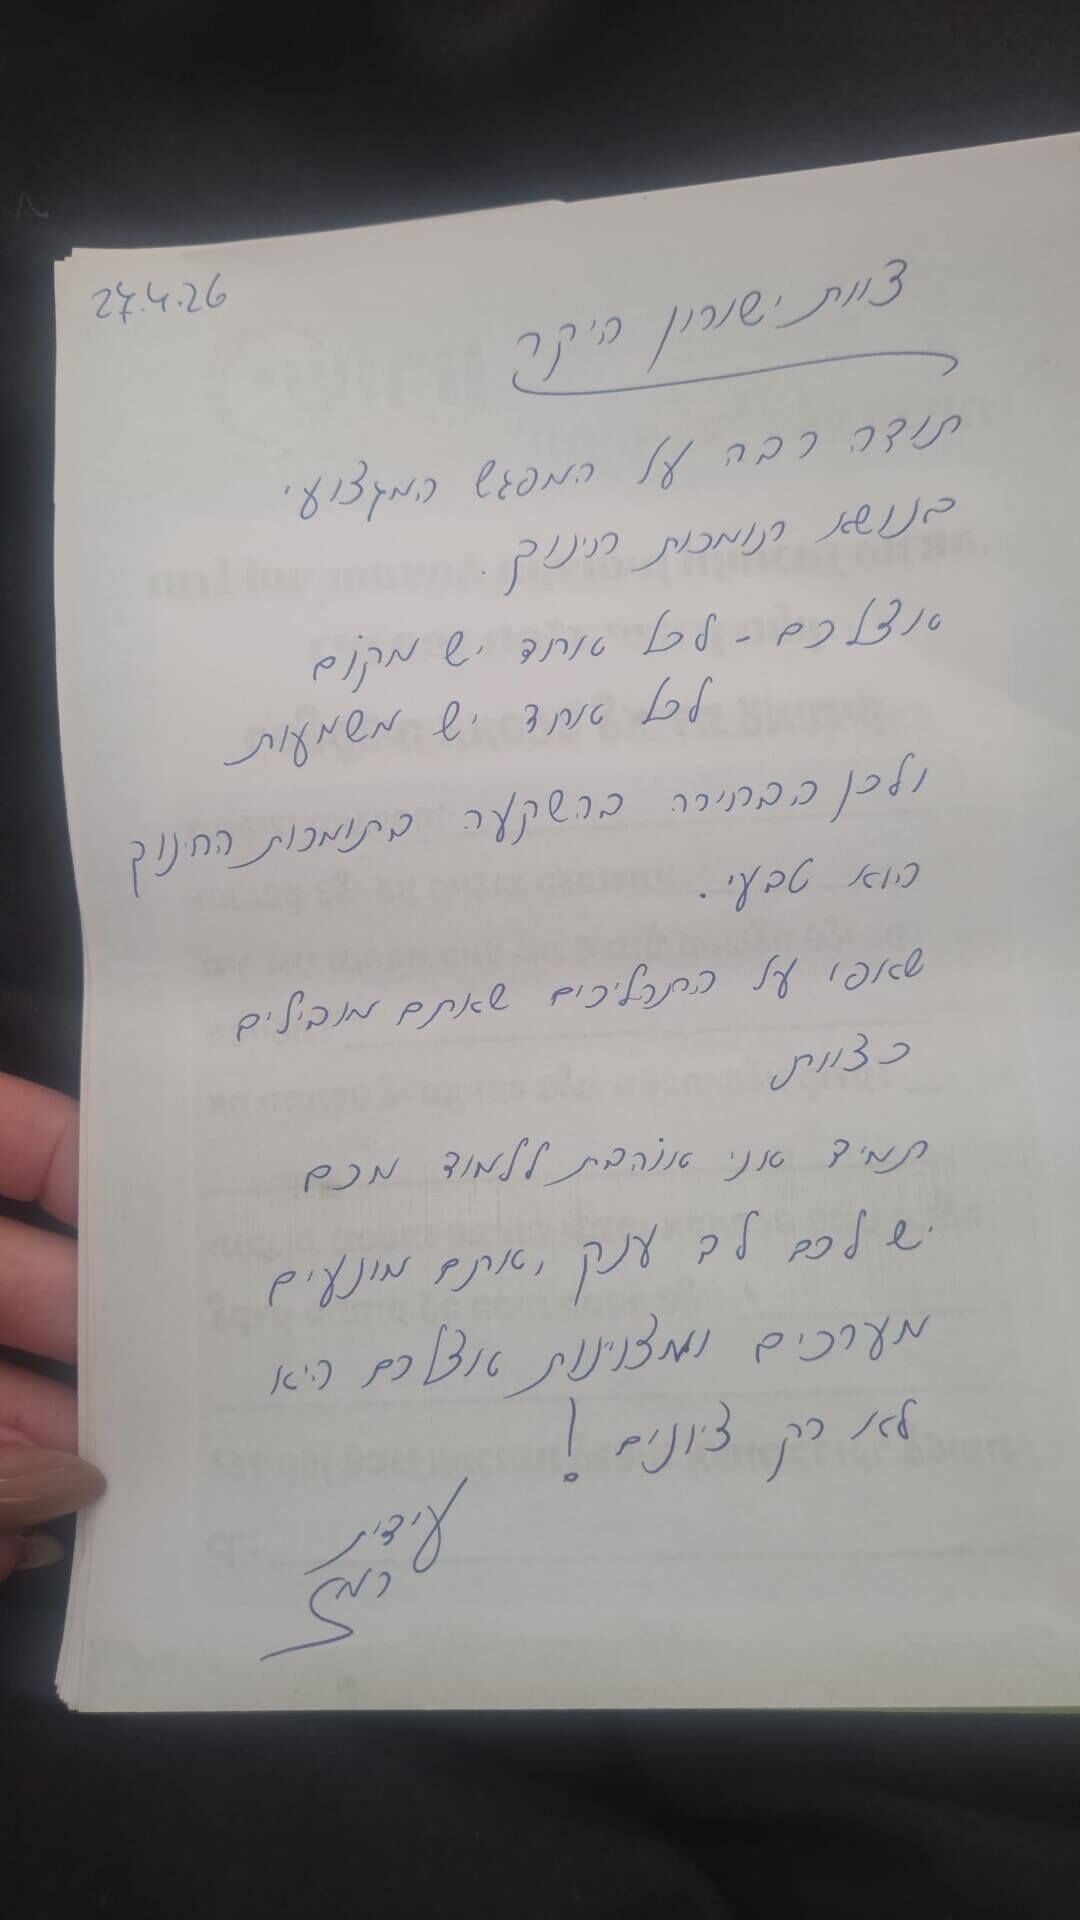 27.4.26
צוות ישורון היקר
תודה רבה על המפגש המקצועי
בנושא תומכות חינוך.
אצלכם - לכל אחד יש מקום
לכל אחד יש משמעות
ולכן הבחירה בהשקעה בתומכות החינוך
היא טבעי.
שאפו על התהליכים שאתם מובילים
כצוות
תמיד אני אוהבת ללמוד מכם
יש לכם לב ענק, אתם מונעים
מערכים ומצוינות אצלכם היא
לא רק ציונים!
עידית
רמ